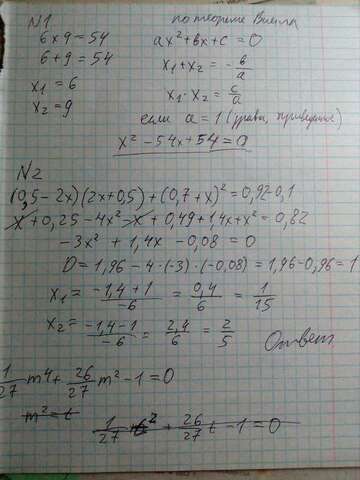 N1 по теореме Виета
6×9=54 ax²+bx+c=0
6+9=54 x₁+x₂ = -b/a
x₁=6 x₁·x₂ = c/a
x₂=9 если a=1 (уравн. приведенное)
x²-54x+54=0
N2
(0,5-2x)(2x+0,5)+(0,7+x)²=0,92-0,1
x+0,25-4x²-x+0,49+1,4x+x²=0,82
-3x²+1,4x-0,08=0
D=1,96-4·(-3)·(-0,08)=1,96-0,96=1
x₁= (-1,4+1)/-6 = 0,4/6 = 1/15
x₂= (-1,4-1)/-6 = 2,4/6 = 2/5 Ответ
1/27 m⁴+ 26/27 m²-1=0
m²=t 1/27 t² + 26/27 t -1=0